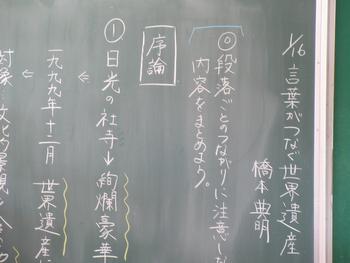 1/16 言葉がつなぐ世界遺産
橋本典明
◎段落ごとのつながりに注意しな
内容をまとめよう。
序論
①日光の社寺→絢爛豪華
一九九九年十二月 世界遺産に
対象 文化的景観